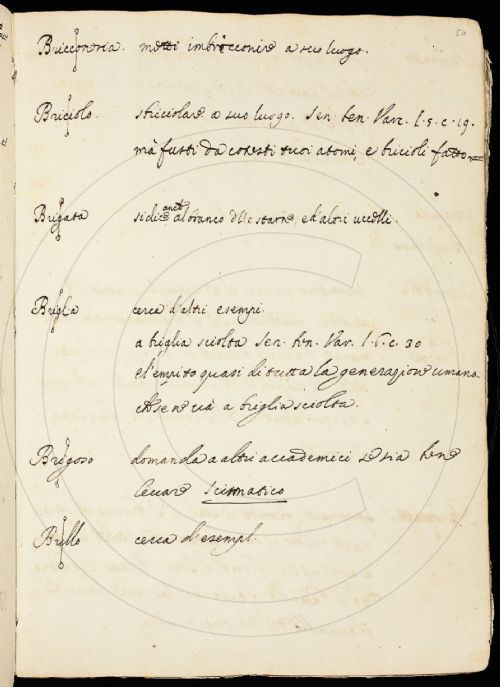 50
Bricconeria. metti imbricconire a suo luogo.
Briciolo. striciolare a suo luogo. Sen. ben. Varc. l. 5. c. 19.
mà fusti da cotesti tuoi atomi, e bricioli fatto
Brigata si dice anche al branco d'lle starne, ed altri uccelli.
Briglia cerca d'altri esempi.
a briglia sciolta Sen. ben. Var. l. 1. c. 30
e l'empito quasi di tutta la generazione umana
che se ne và a briglia sciolta.
Brigoso domanda a altri accademici se sia bene
levare scismatico
Brillo cerca d'esempl.